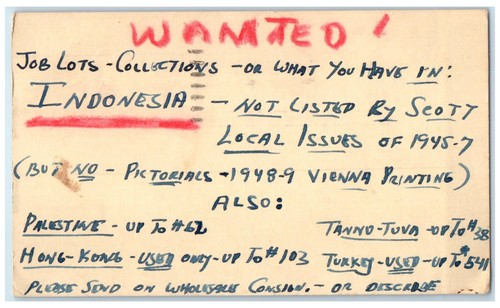 WANTED!
JOB LOTS - COLLECTIONS - OR WHAT YOU HAVE IN:
INDONESIA - NOT LISTED BY SCOTT
LOCAL ISSUES OF 1945-7
(BUT NO - PICTORIALS - 1948-9 VIENNA PRINTING)
ALSO:
PALESTINE - UP TO #62 TANNO-TUVA - UP TO #38
HONG-KONG - USED ONLY - UP TO #103 TURKEY - USED - UP TO #541
PLEASE SEND ON WHOLESALE CONSIGN. - OR DESCRIBE